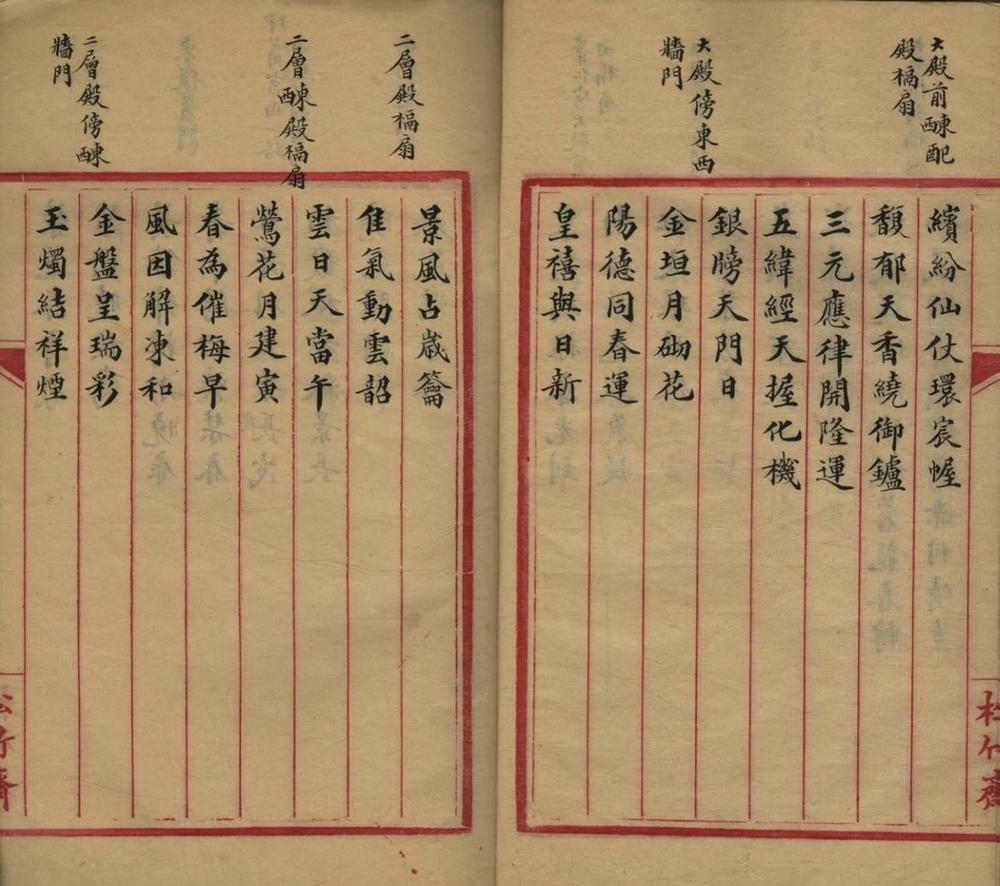 大殿前䣷配
殿槅扇
繽紛仙仗環宸幄
馥郁天香繞御鑪
三元應律開隆運
五緯經天握化機
大殿傍東西
牆門
銀牓天門日
金垣月砌花
陽德同春運
皇禧與日新
二層殿槅扇
景風占歲籥
佳氣動雲韶
二層䣷殿槅扇
雲日天當午
鶯花月建寅
春為催梅早
風因解凍和
二層殿傍䣷
牆門
金盤呈瑞彩
玉燭結祥煙
松竹齋
松竹齋